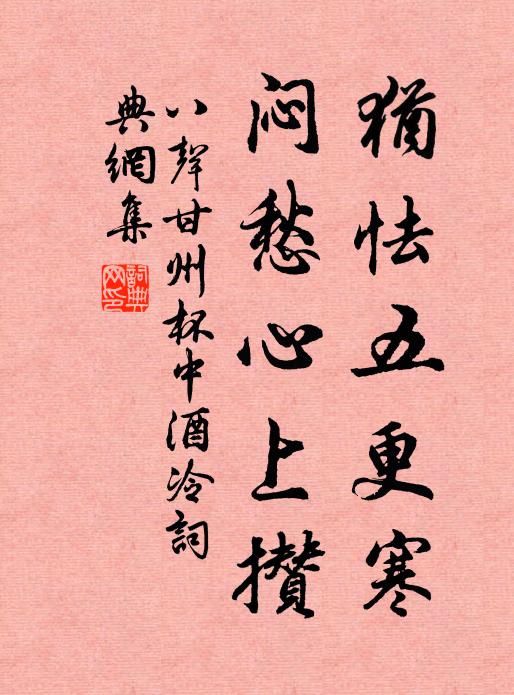 猶怯五更寒
闷愁心上攒
八聲甘州杯中酒冷詞
典網集
詞典
网印